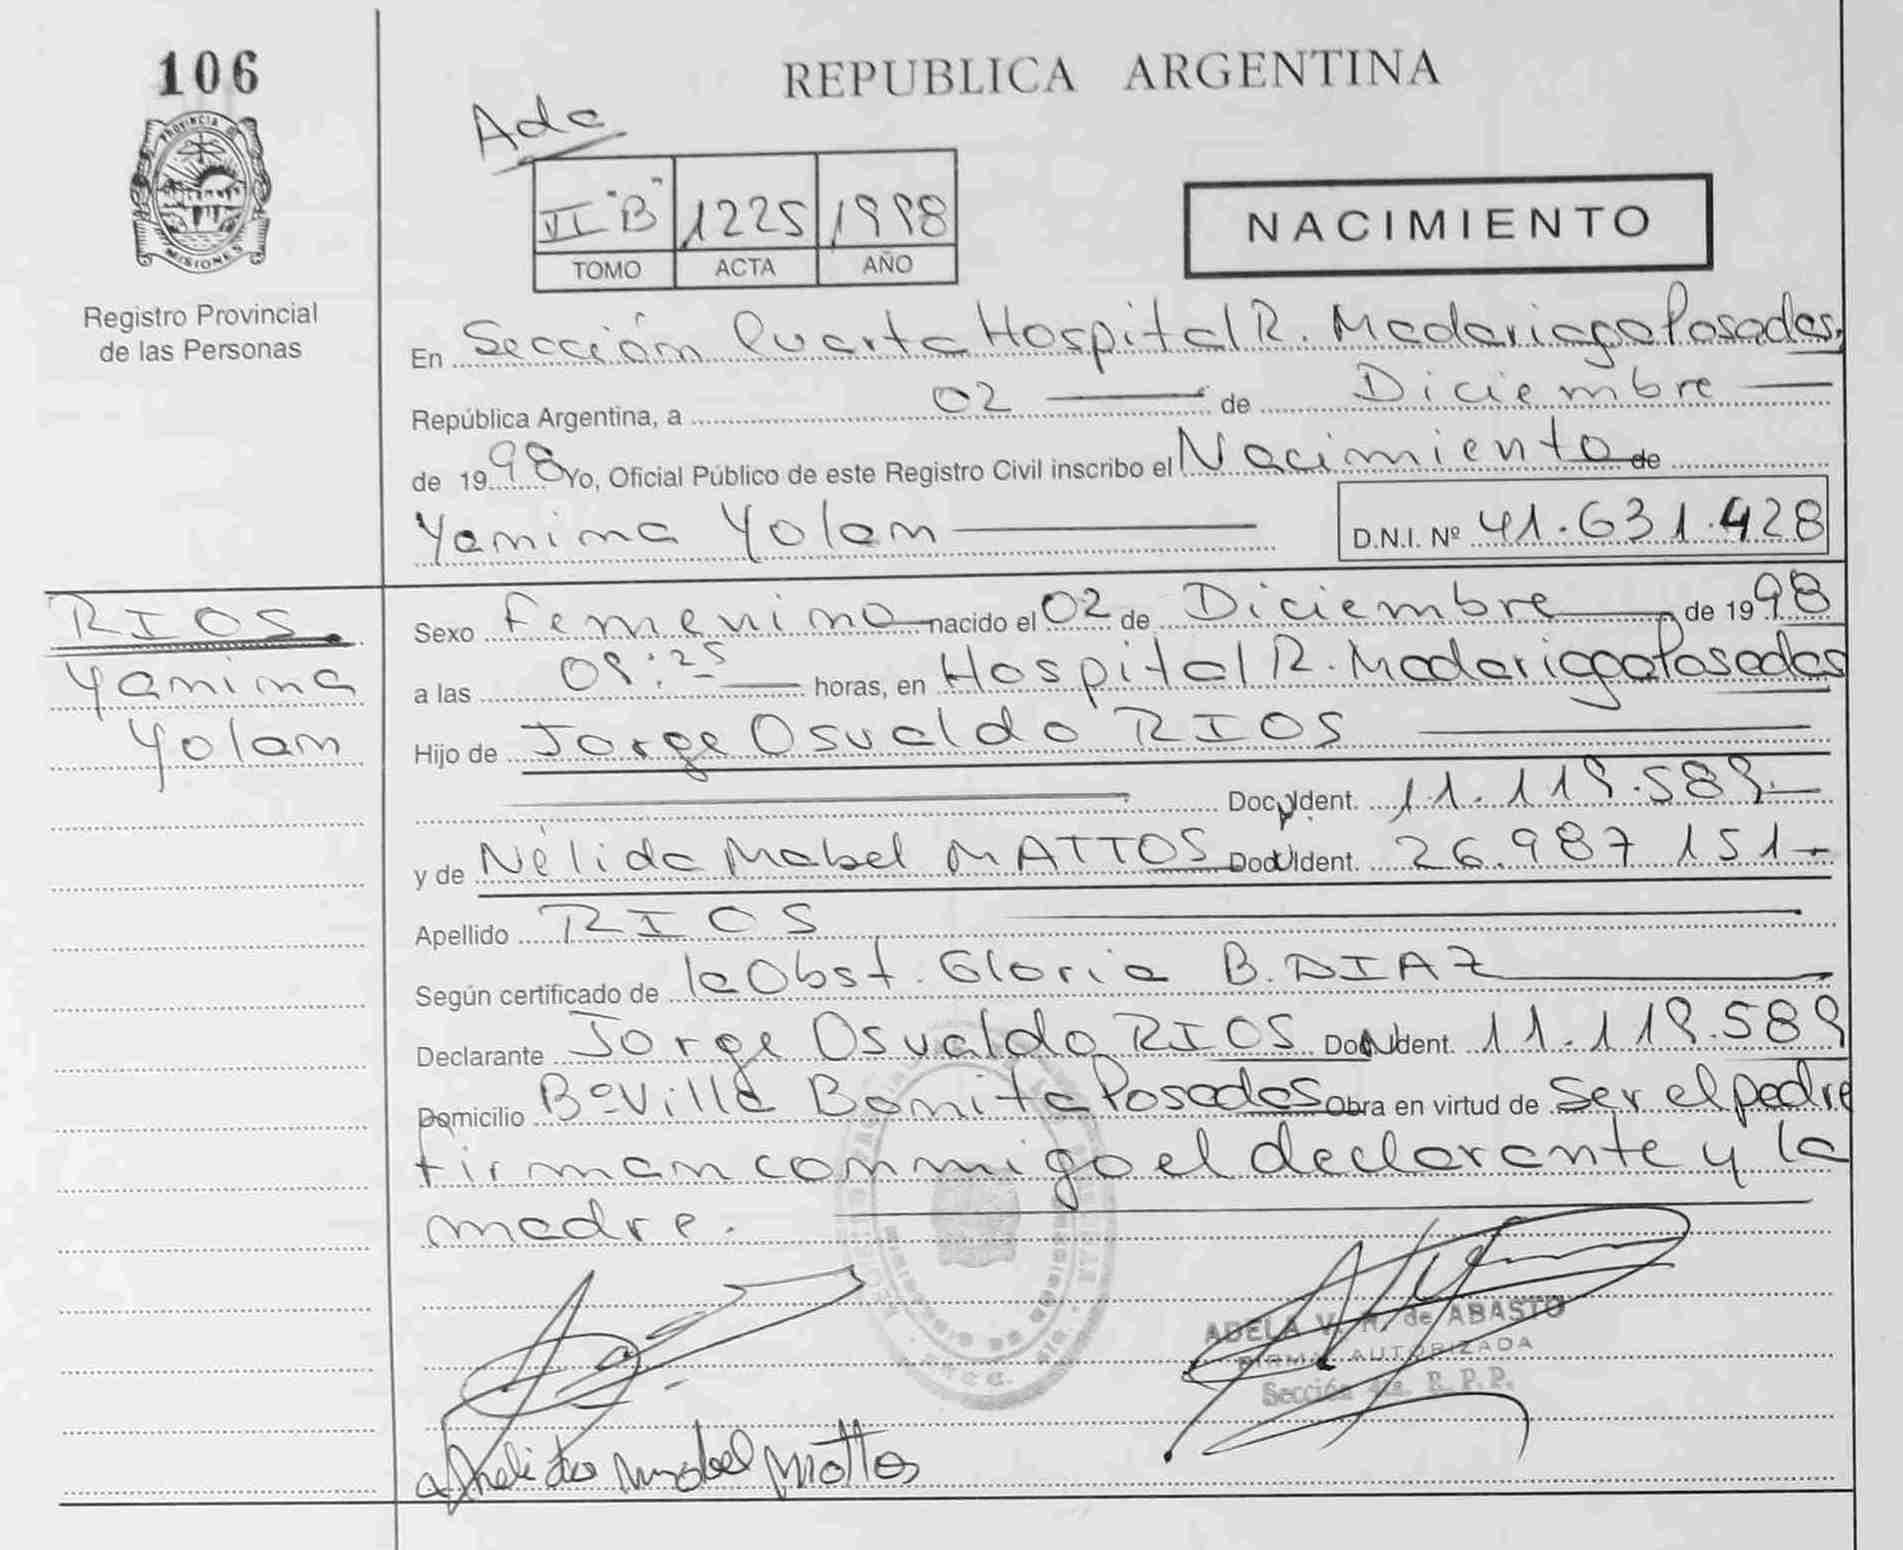 106
REPUBLICA ARGENTINA
PROVINCIA DE
MISIONES
Registro Provincial
de las Personas
Ada
VI "B" 1225 1998
TOMO ACTA AÑO
NACIMIENTO
En Sección Cuarta Hospital R. Madariaga Posadas,
República Argentina, a 02 de Diciembre
de 1998 Yo, Oficial Público de este Registro Civil inscribo el Nacimiento de
Yamima Yolam
D.N.I. Nº 41.631.428
RIOS
Yamima
Yolam
Sexo Femenino nacido el 02 de Diciembre de 1998
a las 09:25 horas, en Hospital R. Madariaga Posadas
Hijo de Jorge Osvaldo RIOS
Doc. Ident. 11.119.589.-
y de Nélida Mabel MATTOS Doc. Ident. 26.987 151-
Apellido RIOS
Según certificado de la Obst. Gloria B. DIAZ
Declarante Jorge Osvaldo RIOS Doc. Ident. 11.119.589
Domicilio Bº Villa Bonita Posadas Obra en virtud de Ser el padre
firman conmigo el declarante y la
madre.
ADELA V. N. de ABASTO
FIRMA AUTORIZADA
Sección 4ta. R. P. P.
Nelida Mabel Mattos